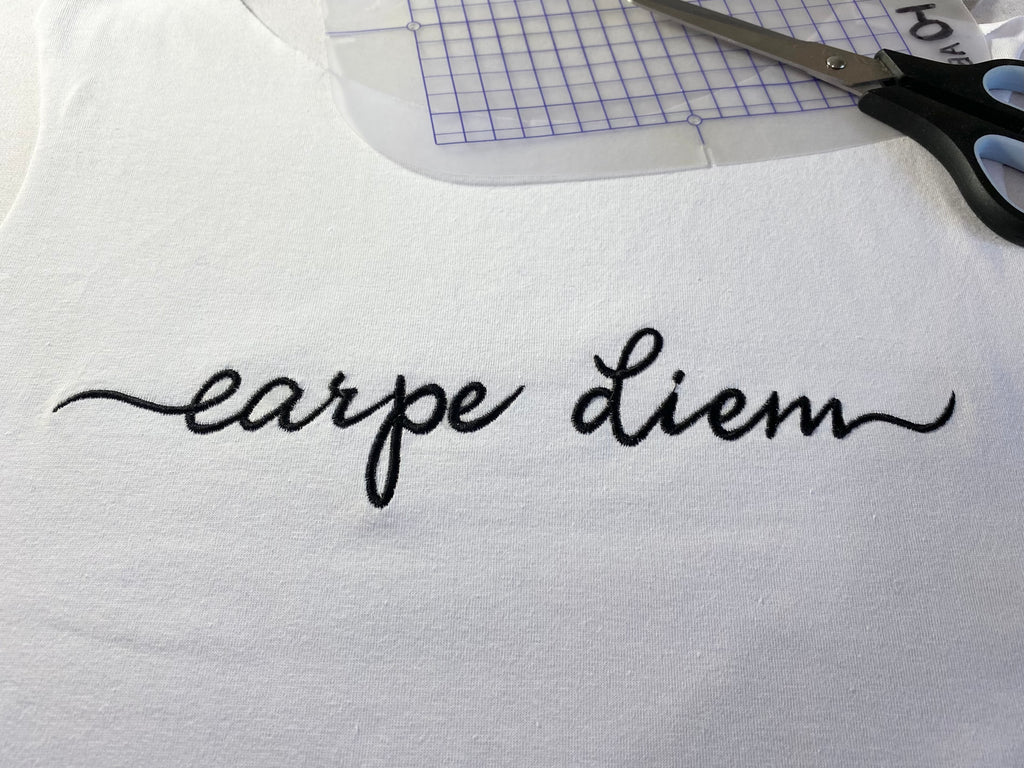 carpe diem